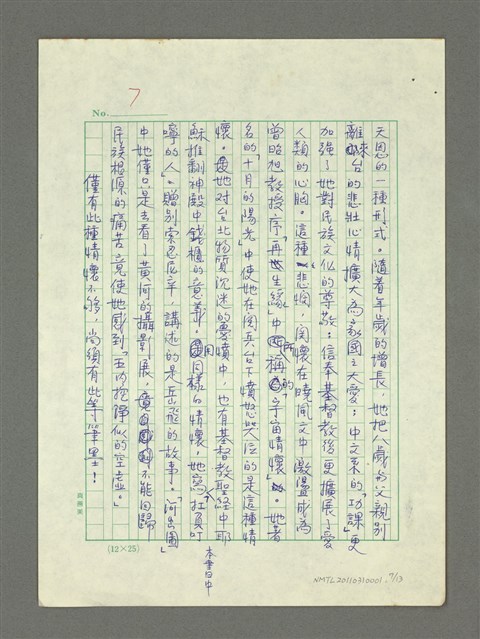 7
No.
天恩的一種形式。隨着年歲的增長，她把八歲與父親別
離來台的悲壯心情擴大為家國之大愛；中文系的「功課」更
加強了她對民族文化的尊敬；信奉基督教後更擴展了愛
人類的心胸。這種悲憫，關懷在曉風文中激盪成為
曾昭旭教授序「再生緣」中所稱的「宇宙情懷」。她著
名的「十月的陽光」中使她在閱兵台下憤怒哭泣的是這種情
懷。她對台北物質沉迷的憂憤中，也有基督教聖經中耶
穌推翻神殿中錢櫃的意義。用同樣的情懷，她寫「扛負叮
嚀的人」。贈別索忍尼辛，講述的是岳飛的故事。「河出圖」
本書中
中她僅只是去看一黃河的攝影展，竟不能回歸
民族根源的痛苦竟使她感到「五內挖掉似的空虛。」
僅有此種情懷不够，尚須有此等筆墨！
(12×25)
NMTL20110310001 7/13